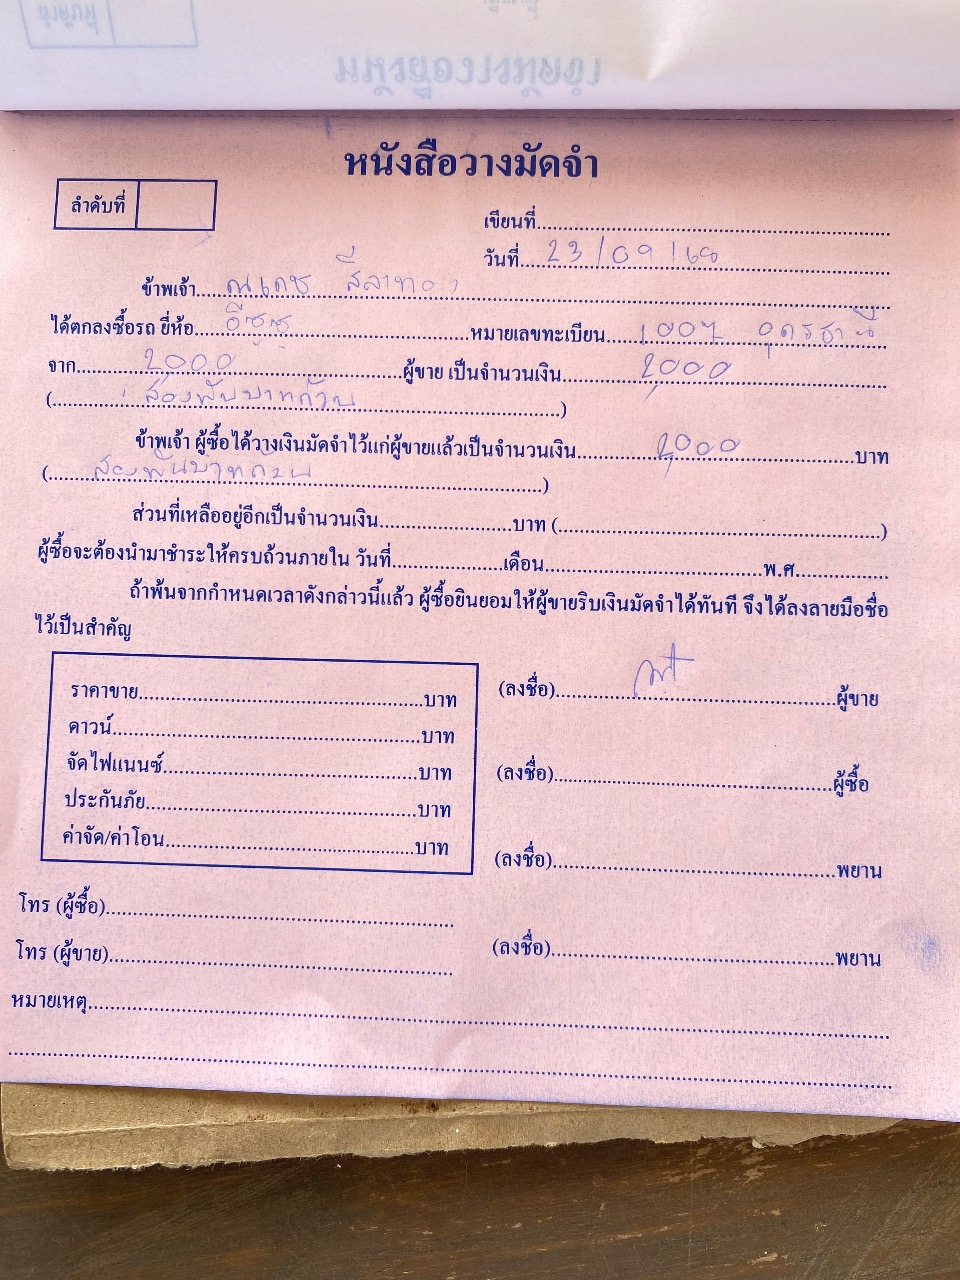 หนังสือวางมัดจำ
ลำดับที่
เขียนที่
วันที่ 23/09/68
ข้าพเจ้า ณเดช สีลาทอง
ได้ตกลงซื้อรถ ยี่ห้อ อีซูซุ หมายเลขทะเบียน 1007 อุดรธานี
จาก 2000 ผู้ขาย เป็นจำนวนเงิน 2,000
( สองพันบาทถ้วน )
ข้าพเจ้า ผู้ซื้อได้วางเงินมัดจำไว้แก่ผู้ขายแล้วเป็นจำนวนเงิน 2,000 บาท
( สองพันบาทถ้วน )
ส่วนที่เหลืออยู่อีกเป็นจำนวนเงิน บาท ( )
ผู้ซื้อจะต้องนำมาชำระให้ครบถ้วนภายใน วันที่ เดือน พ.ศ.
ถ้าพ้นจากกำหนดเวลาดังกล่าวนี้แล้ว ผู้ซื้อยินยอมให้ผู้ขายริบเงินมัดจำได้ทันที จึงได้ลงลายมือชื่อ
ไว้เป็นสำคัญ
ราคาขาย บาท
ดาวน์ บาท
จัดไฟแนนซ์ บาท
ประกันภัย บาท
ค่าจัด/ค่าโอน บาท
(ลงชื่อ) ผู้ขาย
(ลงชื่อ) ผู้ซื้อ
(ลงชื่อ) พยาน
(ลงชื่อ) พยาน
โทร (ผู้ซื้อ)
โทร (ผู้ขาย)
หมายเหตุ